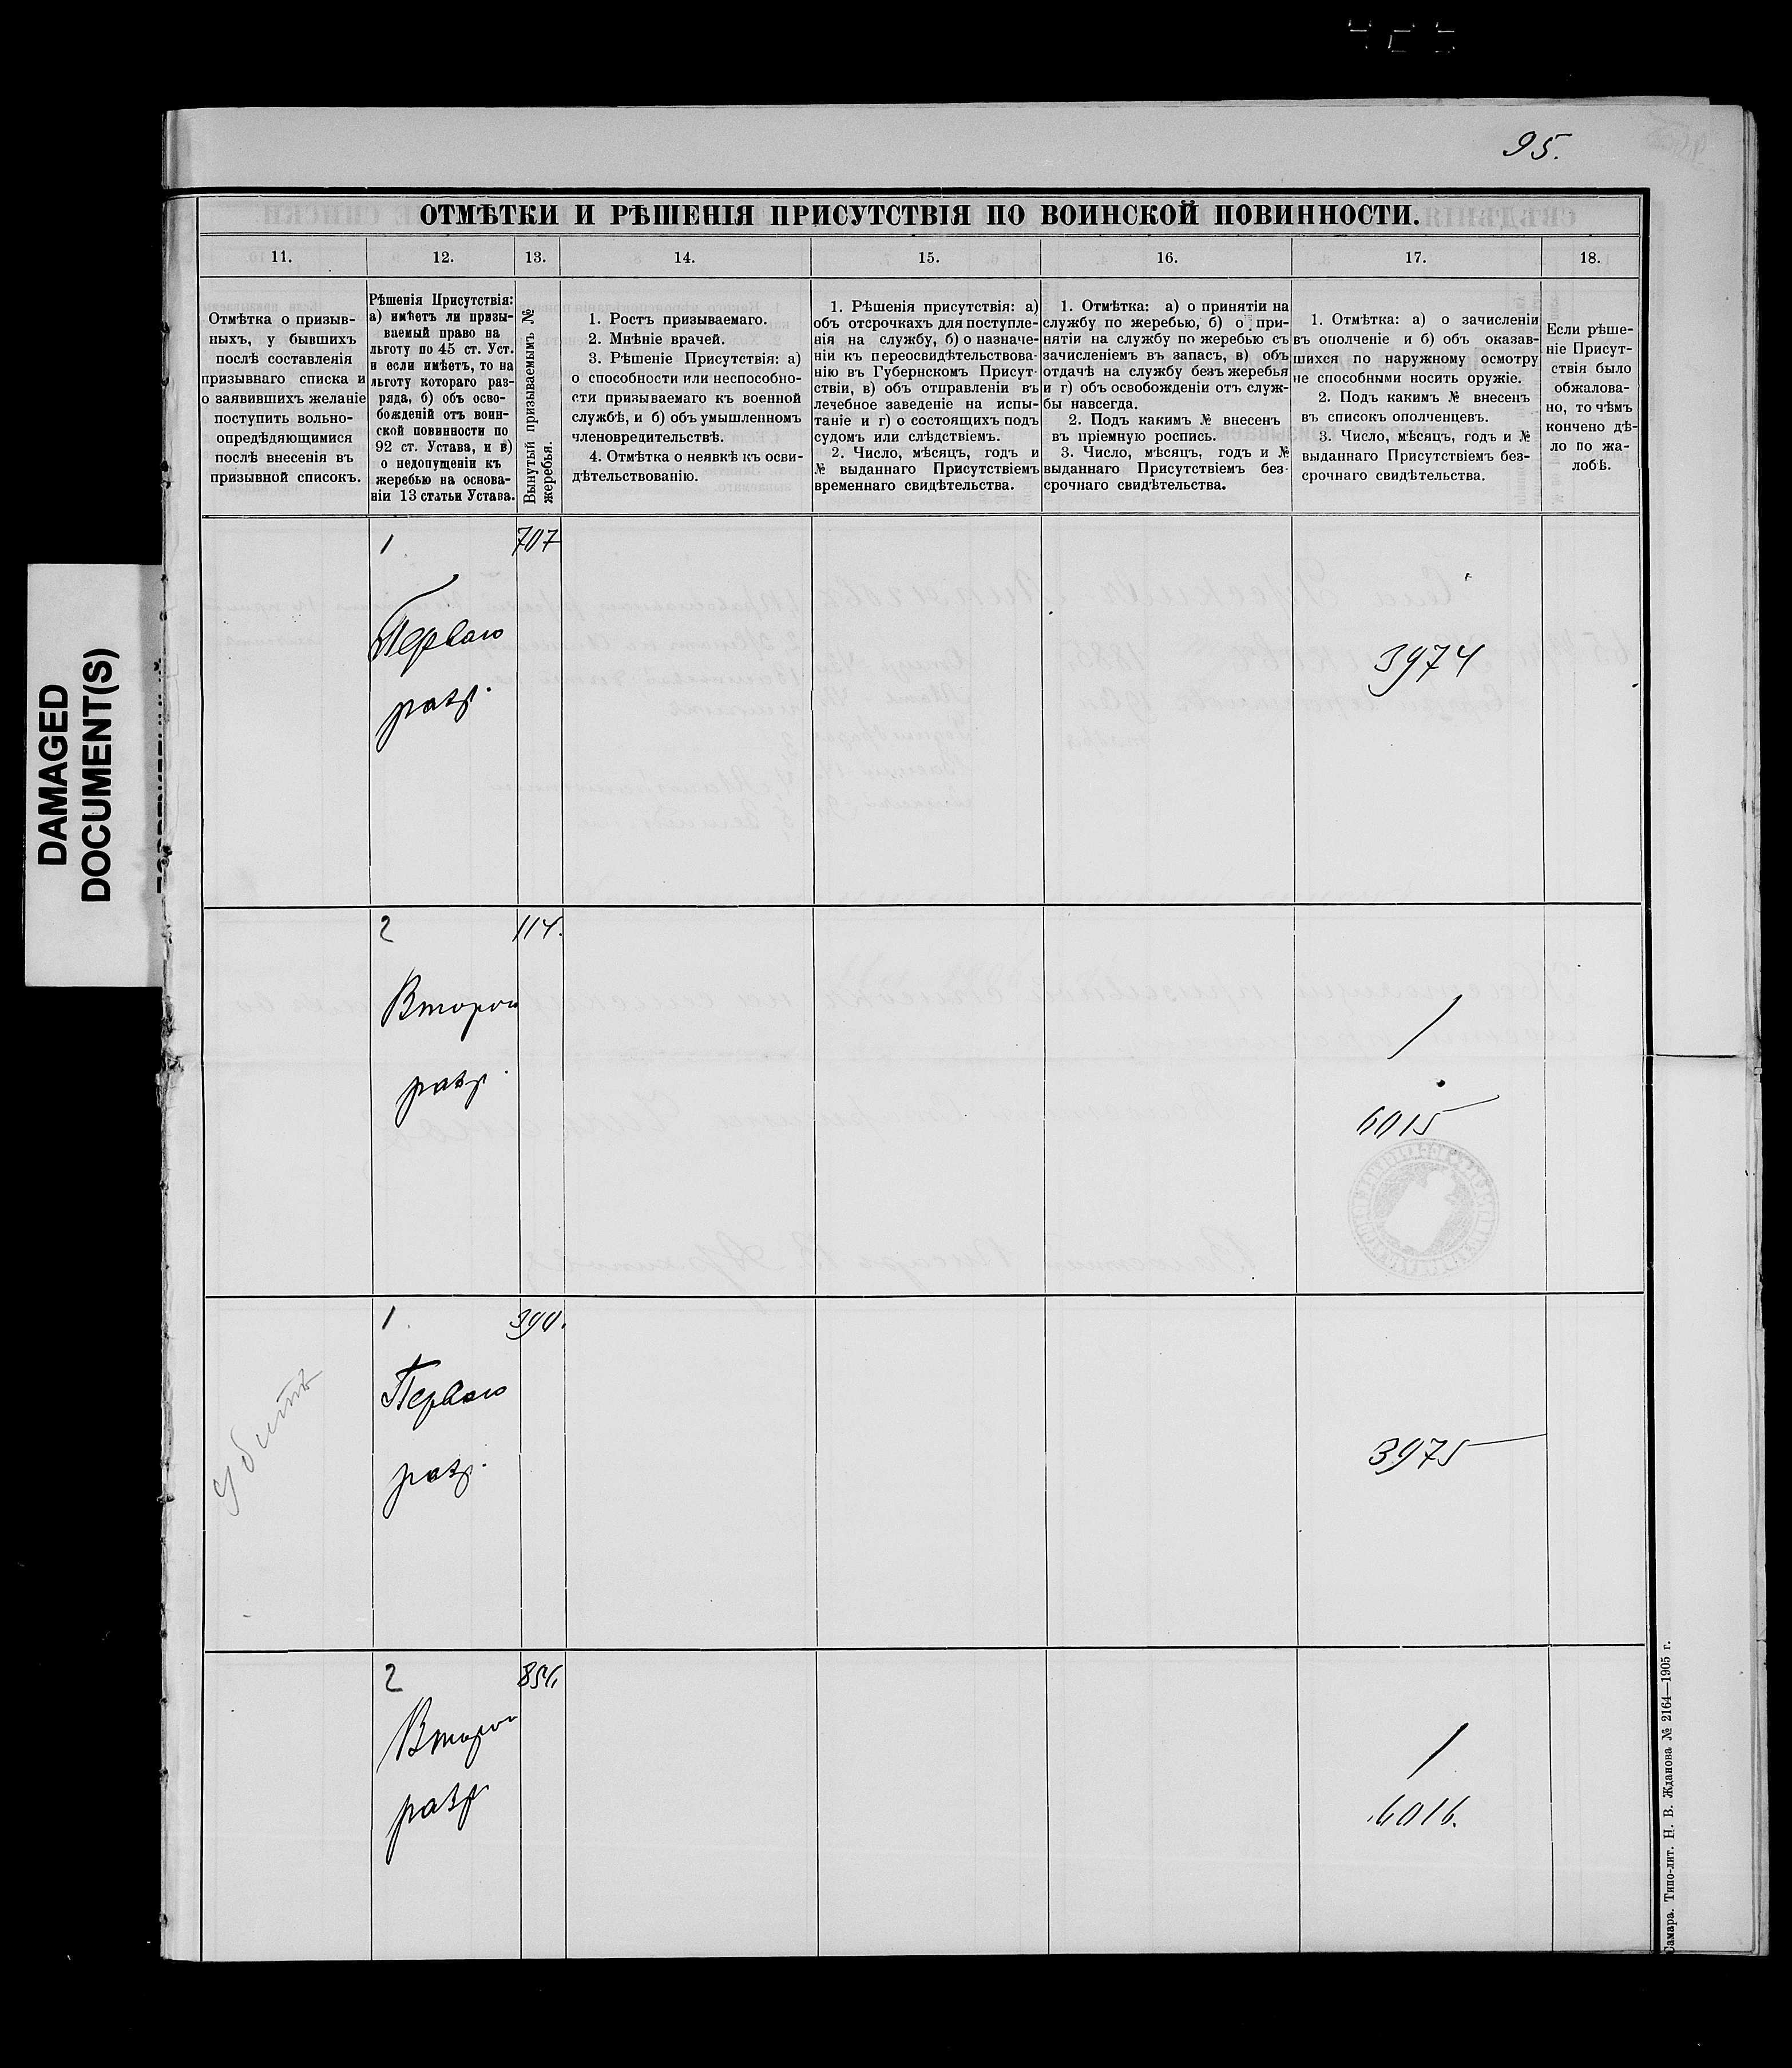 95.
ОТМѢТКИ И РѢШЕНІЯ ПРИСУТСТВІЯ ПО ВОИНСКОЙ ПОВИННОСТИ.
11.
12.
13.
14.
15.
16.
17.
18.
Отмѣтка о призыв-
ныхъ, у бывшихъ
послѣ составленія
призывнаго списка и
о заявившихъ желаніе
поступить вольно-
опредѣдяющимися
послѣ внесенія въ
призывной списокъ.
Рѣшенія Присутствія:
а) имѣетъ ли призы-
ваемый право на
льготу по 45 ст. Уст.
и если имѣетъ, то на
льготу котораго раз-
ряда, б) объ осво-
божденій отъ воин-
ской повинности по
92 ст. Устава, и в)
о недопущеніи къ
жеребью на основа-
ніи 13 статьи Устава.
Вынутый призываемымъ №
жеребья.
1. Ростъ призываемаго.
2. Мнѣніе врачей.
3. Рѣшеніе Присутствія: а)
о способности или неспособно-
сти призываемаго къ военной
службѣ, и б) объ умышленномъ
членовредительствѣ.
4. Отмѣтка о неявкѣ къ осви-
дѣтельствованію.
1. Рѣшенія присутствія: а)
объ отсрочкахъ для поступле-
нія на службу, б) о назначе-
ніи къ переосвидѣтельствова-
нію въ Губернскомъ Присут-
ствіи, в) объ отправленіи въ
лечебное заведеніе на испы-
таніе и г) о состоящихъ подъ
судомъ или слѣдствіемъ.
2. Число, мѣсяцъ, годъ и
№ выданнаго Присутствіемъ
временнаго свидѣтельства.
1. Отмѣтка: а) о принятіи на
службу по жеребью, б) о при-
нятіи на службу по жеребью съ
зачисленіемъ въ запасъ, в) объ
отдачѣ на службу безъ жеребья
и г) объ освобожденіи отъ служ-
бы навсегда.
2. Подъ какимъ № внесенъ
въ пріемную роспись.
3. Число, мѣсяцъ, годъ и №
выданнаго Присутствіемъ без-
срочнаго свидѣтельства.
1. Отмѣтка: а) о зачисленіи
въ ополченіе и б) объ оказав-
шихся по наружному осмотру
не способными носить оружіе.
2. Подъ какимъ № внесенъ
въ списокъ ополченцевъ.
3. Число, мѣсяцъ, годъ и №
выданнаго Присутствіемъ без-
срочнаго свидѣтельства.
Если рѣше-
ніе Присут-
ствія было
обжалова-
но, то чѣмъ
кончено дѣ-
ло по жа-
лобѣ.
1
707
Перваго
разр.
3974
DAMAGED
DOCUMENT(S)
2
114.
Второго
разр.
6015
1
390.
Перваго
разр.
убитъ
3975
2
Второго
разр
6016.
Самара. Типо-лит. Н. В. Жданова № 2164—1905 г.